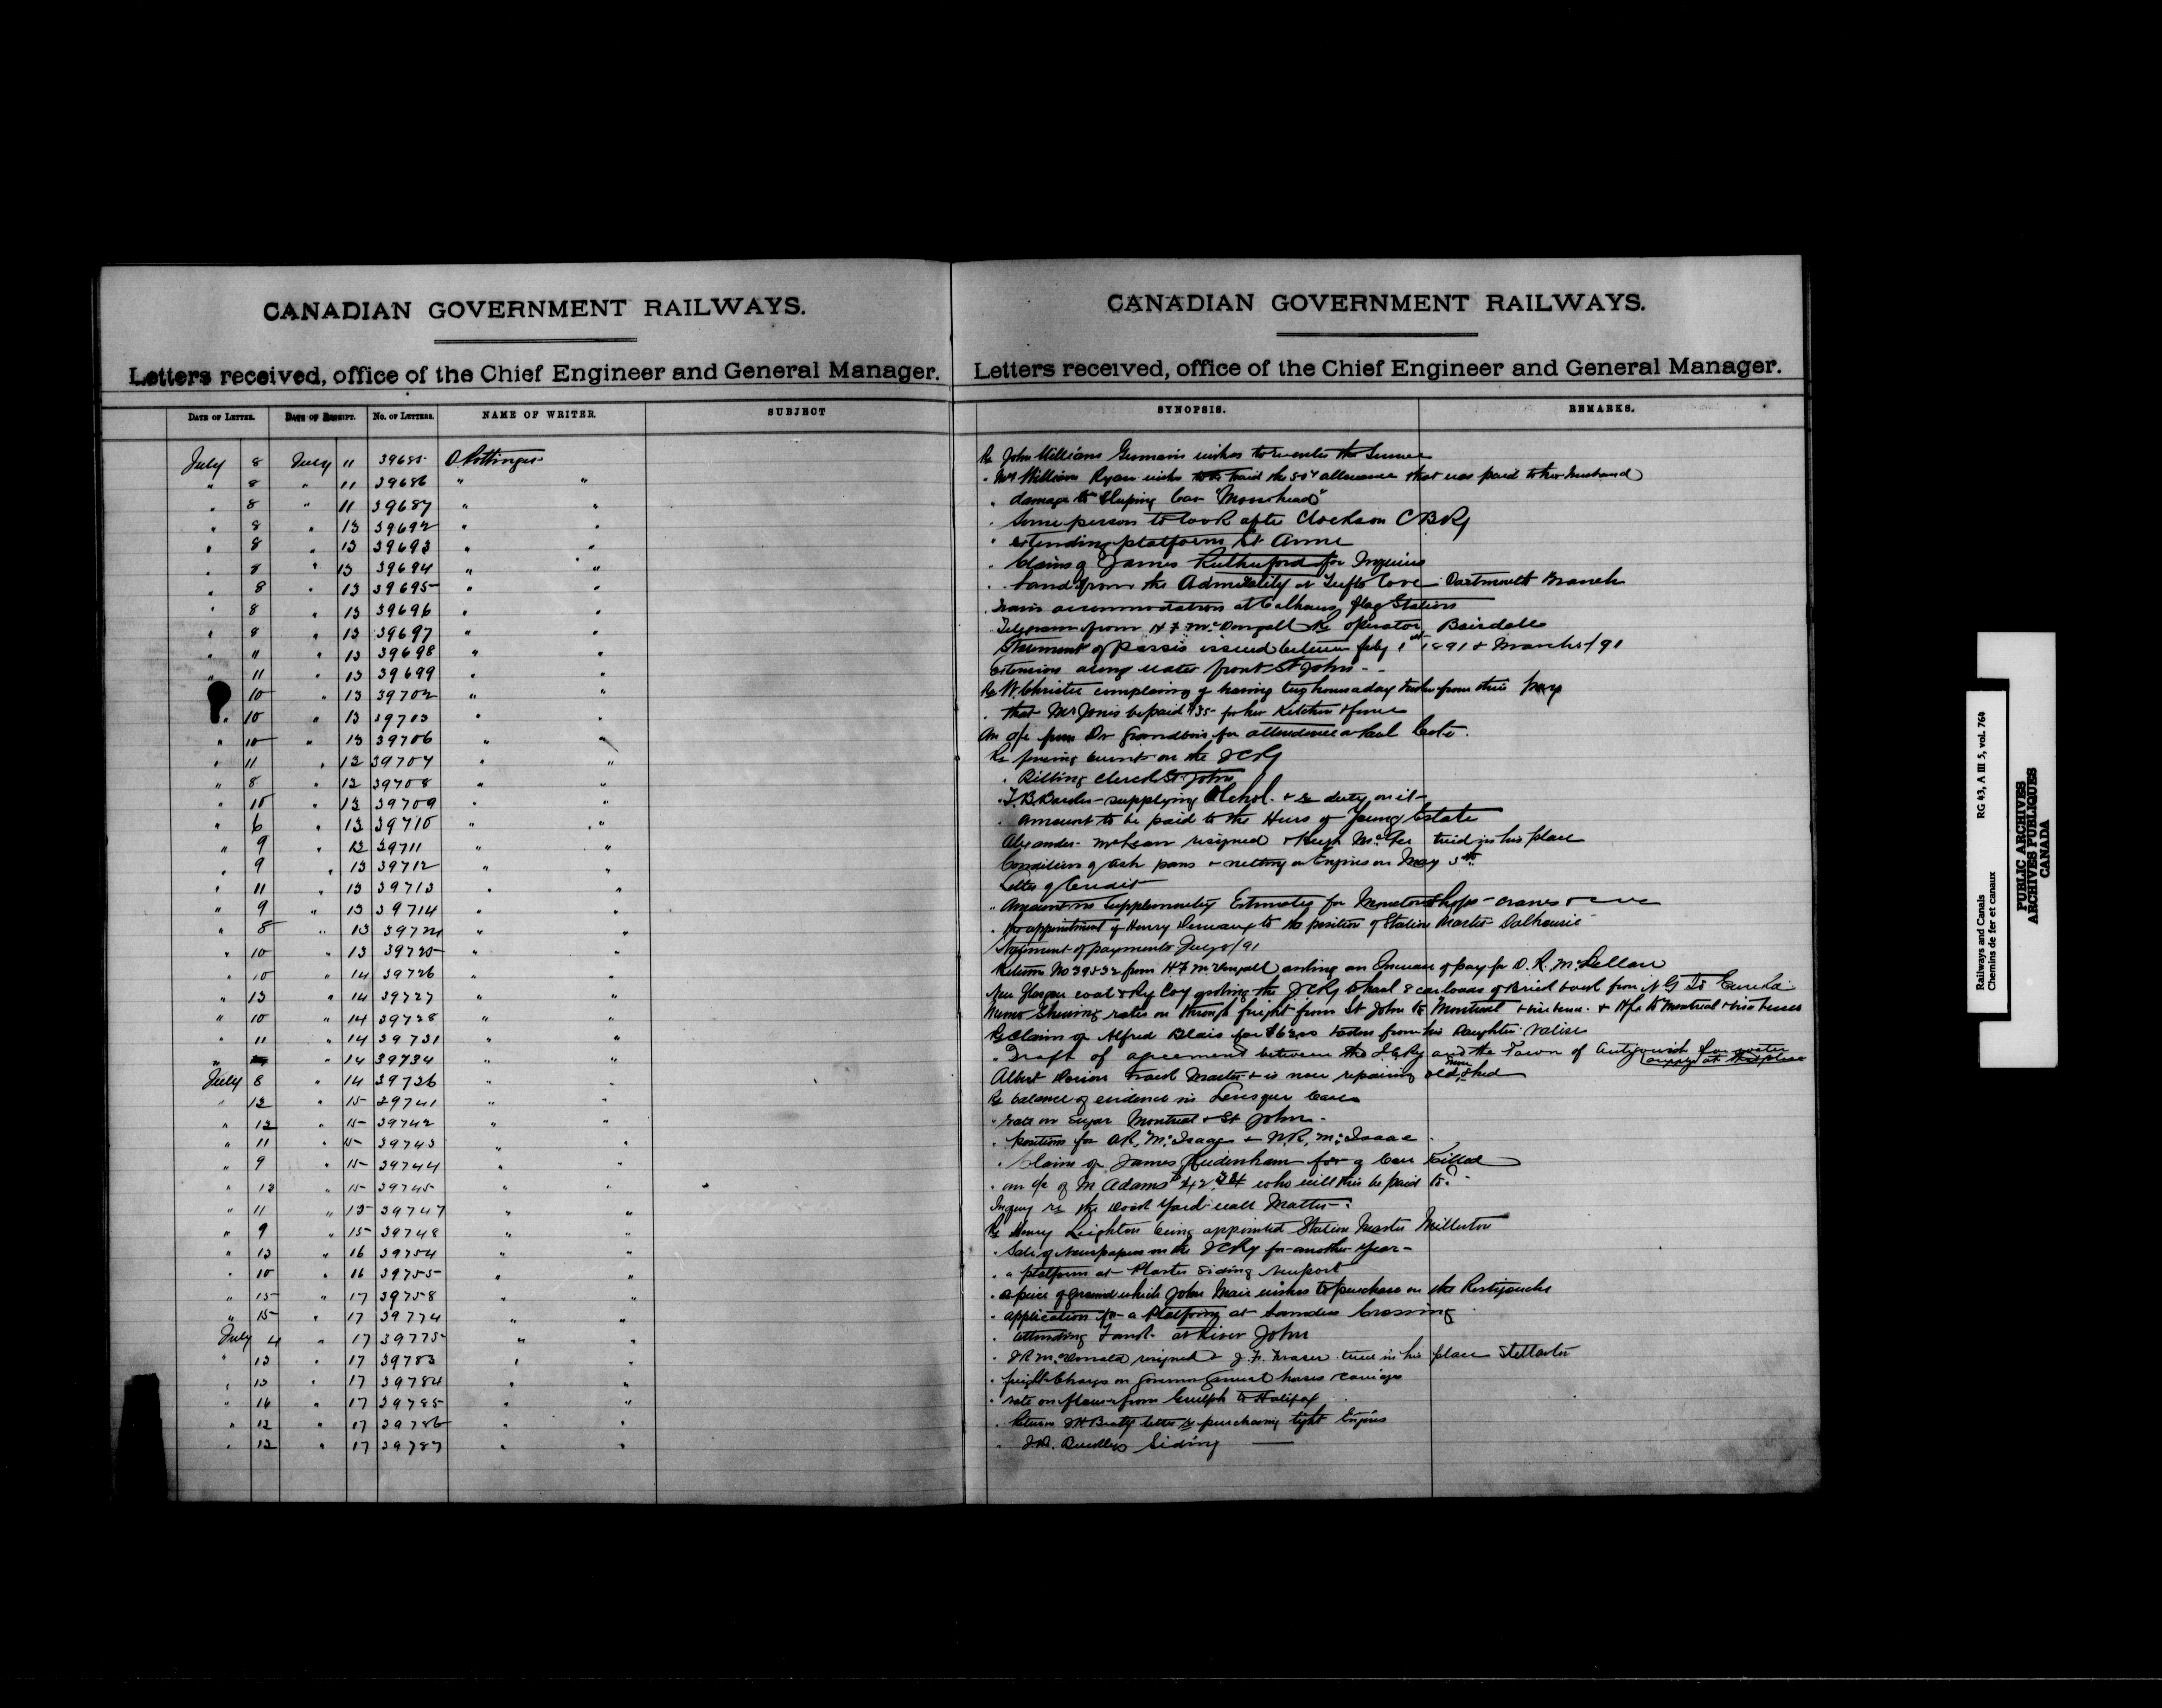 CANADIAN GOVERNMENT RAILWAYS.
Letters received, office of the Chief Engineer and General Manager.
DATE OF LETTER. DATE OF RECEIPT. NO. OF LETTERS. NAME OF WRITER. SUBJECT
July 8 July 11 39685 D. Pottinger
" 8 " 11 39686 " "
" 8 " 11 39687 " "
" 8 " 13 39692 " "
" 8 " 13 39693 " "
" 8 " 13 39694 " "
" 8 " 13 39695 " "
" 8 " 13 39696 " "
" 8 " 13 39697 " "
" 11 " 13 39698 " "
" 11 " 13 39699 " "
10 " 13 39702 " "
" 10 " 13 39703 " "
" 10 " 13 39706 " "
" 11 " 13 39707 " "
" 8 " 13 39708 " "
" 10 " 13 39709 " "
" 6 " 13 39710 " "
" 9 " 13 39711 " "
" 9 " 13 39712 " "
" 11 " 13 39713 " "
" 9 " 13 39714 " "
" 8 " 13 39724 " "
" 10 " 13 39725 " "
" 10 " 14 39726 " "
" 13 " 14 39727 " "
" 10 " 14 39728 " "
" 11 " 14 39731 " "
" " 14 39734 " "
July 8 " 14 39736 " "
" 12 " 15 39741 " "
" 12 " 15 39742 " "
" 11 " 15 39743 " "
" 9 " 15 39744 " "
" 13 " 15 39745 " "
" 11 " 15 39747 " "
" 9 " 15 39748 " "
" 13 " 16 39754 " "
" 10 " 16 39755 " "
" 15 " 17 39758 " "
" 15 " 17 39774 " "
July 4 " 17 39775 " "
" 13 " 17 39783 " "
" 13 " 17 39784 " "
" 16 " 17 39785 " "
" 12 " 17 39786 " "
" 12 " 17 39787 " "
CANADIAN GOVERNMENT RAILWAYS.
Letters received, office of the Chief Engineer and General Manager.
SYNOPSIS. REMARKS.
Re John Williams Germain wishes to the
" Mrs William Ryan wishes to be paid the 50¢ allowance that was paid to her husband
" damage to Sleeping Car "Moosehead"
" Some person to look after Clarkson C B Ry
" extending platform St Anne
" Claims of James Rutherford for Injuries
" Land from the Admirality at Tufts Cove Dartmouth Branch
" Train accommodation at Calhouns flag Station
Telegram from H F McDougall Re operator Boisdale
Statement of passes issued between July 1st 1891 & March /91
Extension along water front St John
Re W. Christie complaining of having two hours a day taken from their pay
" that Mrs Jones be paid $35 for her Kitchen & fence
An a/c from Dr Grandbois for attendance Paul Coté.
Re fencing on the I C Ry
" Billing Clerk St John
" T B Barker supplying Alchol. & Re duty on it
" amount to be paid to the Heirs of Young Estate
Alexander McLean resigned & Hugh McGee tried in his place
Condition of ash pans & netting on Engines on May 5th
Letter of Credit
" Amount in Supplementary Estimates for Moncton Shops - cranes &
" the appointment of Henry to the position of Station Master Dalhousie
Statement of payments July 8/91
Returns No 39532 from H F McDougall asking an Increase of pay for D. R. McLellan
New Glasgow coal & Ry Coy asking the I C Ry to haul 8 carloads of Brick back from N G to Eureka
Memo Shewing rates on through freight from St John to Montreal & vice versa & Hfx to Montreal & vice versa
Re Claim of Alfred Blais for $63.00 taken from his Daughter valise
" Draft of agreement between the I. C Ry and the Town of Antigonish for water supply at that place
Albert Track Master & is now repairing old Snow Shed
Re balance of evidence in Levesque Case
" rate on Sugar Montreal & St John
" positions for A R. McIsaac & N. R. McIsaac
" Claim of James for a Cow Killed
" an a/c of M Adams $42.24 who will this be paid to?
Inquiry re the Dock Yard wall Matter
Re Henry Leighton being appointed Station Master Millerton
" Sale of Newspapers on the I C Ry for another Year
" a platform at Plaster Siding Newport
" a piece of ground which John Mair wishes to purchase on the Restigouche
" application for a Platform at Saunders Crossing
" attending Tank at River John
" J R McDonald resigned & J. F. Fraser tried in his place Stellarton
" freight Charges on Governor General horses & carriages
" rate on flour from Guelph to Halifax
" Returns J H Beatty letter re purchasing light Engines
" Siding
Railways and Canals RG 43, A III 5, vol. 764
Chemins de fer et canaux
PUBLIC ARCHIVES
ARCHIVES PUBLIQUES
CANADA